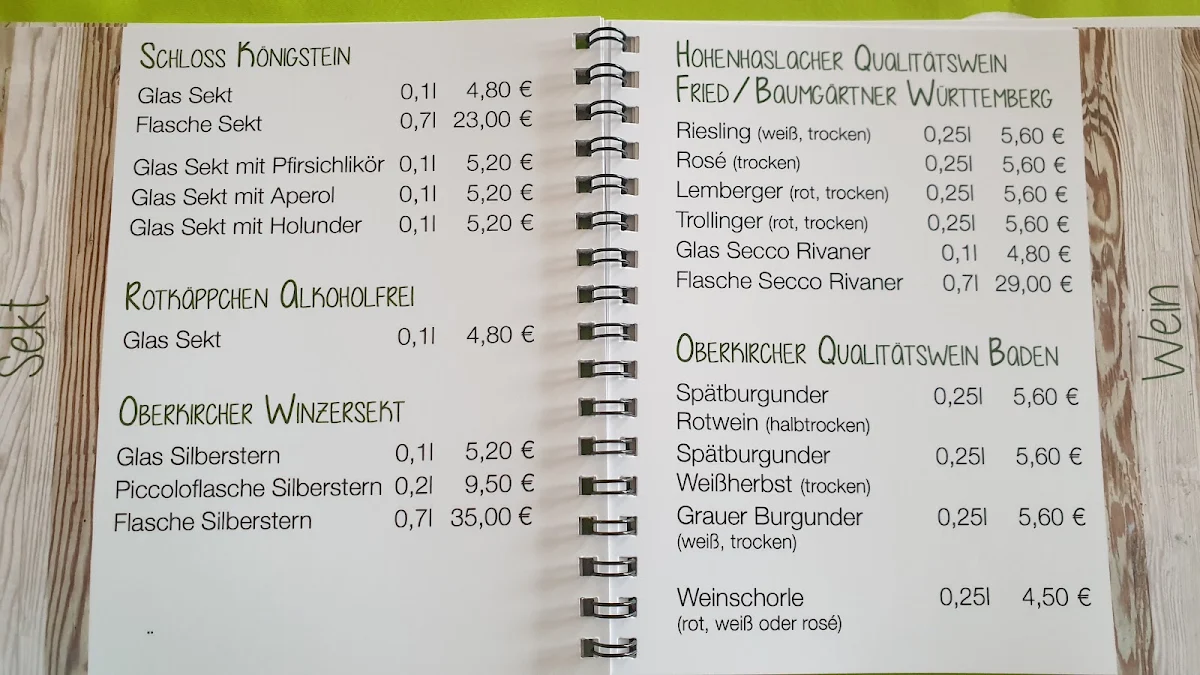 Sekt
SCHLOSS KÖNIGSTEIN
Glas Sekt 0,1l 4,80 €
Flasche Sekt 0,7l 23,00 €
Glas Sekt mit Pfirsichlikör 0,1l 5,20 €
Glas Sekt mit Aperol 0,1l 5,20 €
Glas Sekt mit Holunder 0,1l 5,20 €
ROTKÄPPCHEN ALKOHOLFREI
Glas Sekt 0,1l 4,80 €
OBERKIRCHER WINZERSEKT
Glas Silberstern 0,1l 5,20 €
Piccoloflasche Silberstern 0,2l 9,50 €
Flasche Silberstern 0,7l 35,00 €
Wein
HOHENHASLACHER QUALITÄTSWEIN
FRIED/BAUMGÄRTNER WÜRTTEMBERG
Riesling (weiß, trocken) 0,25l 5,60 €
Rosé (trocken) 0,25l 5,60 €
Lemberger (rot, trocken) 0,25l 5,60 €
Trollinger (rot, trocken) 0,25l 5,60 €
Glas Secco Rivaner 0,1l 4,80 €
Flasche Secco Rivaner 0,7l 29,00 €
OBERKIRCHER QUALITÄTSWEIN BADEN
Spätburgunder 0,25l 5,60 €
Rotwein (halbtrocken)
Spätburgunder 0,25l 5,60 €
Weißherbst (trocken)
Grauer Burgunder 0,25l 5,60 €
(weiß, trocken)
Weinschorle 0,25l 4,50 €
(rot, weiß oder rosé)